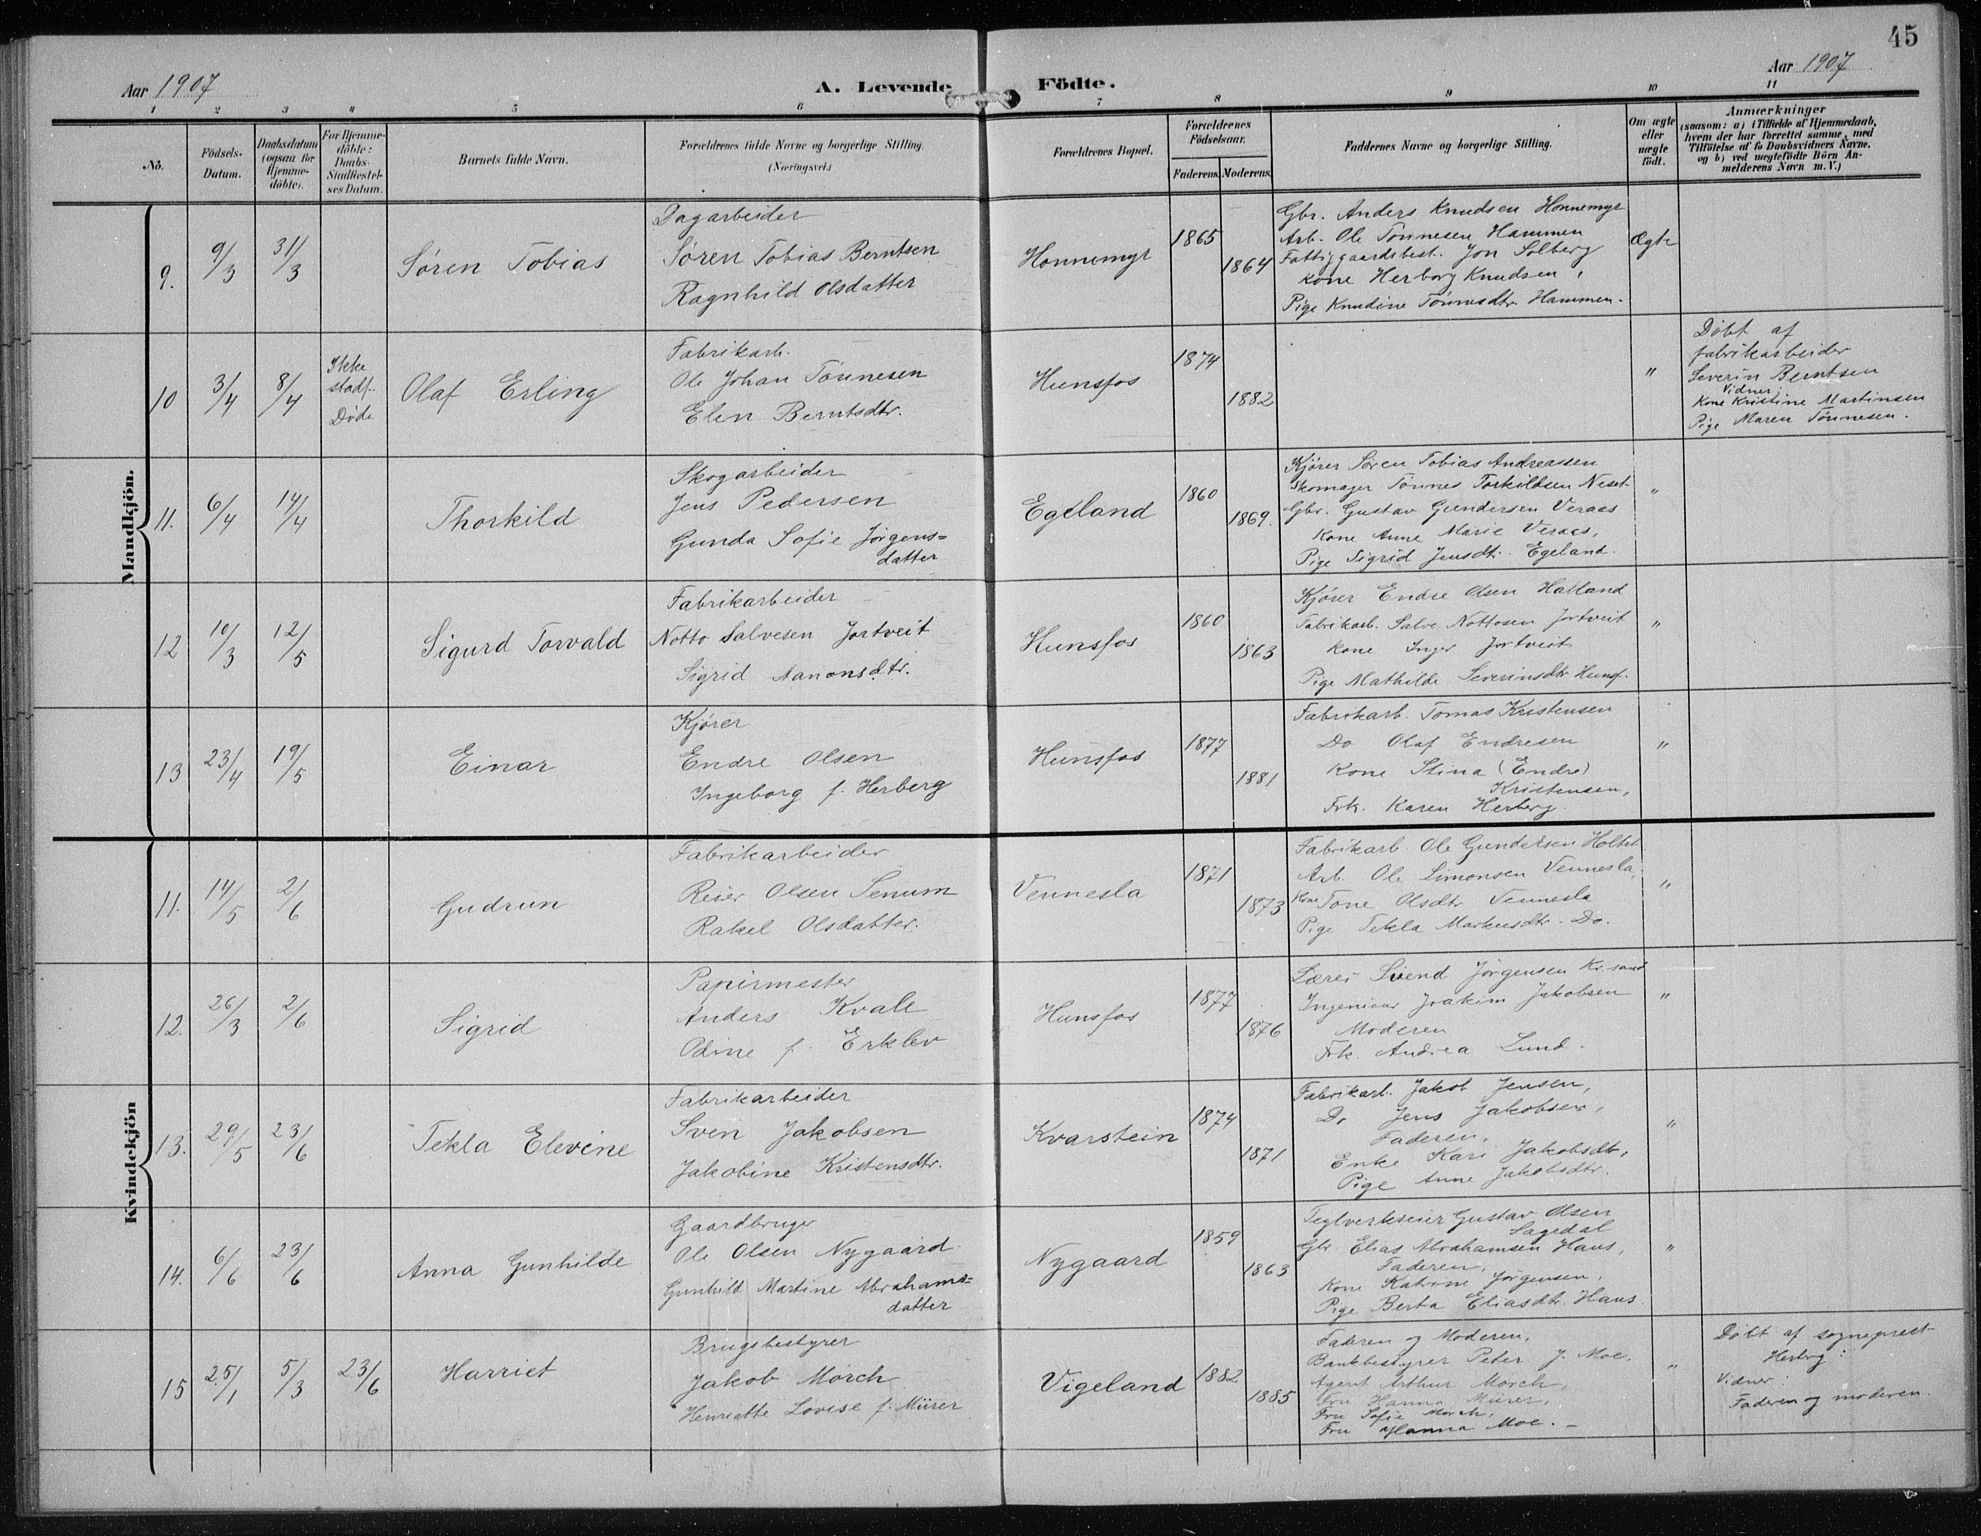 45
Aar 1907
A. Levende Födte.
Aar 1907
1 2 3 4 5 6 7 8 9 10 11
No.
Födsels-
Datum.
Daabsdatum
(ogsaa for
Hjemme-
döbte).
For Hjemme-
döbte:
Daabs-
Stadfæstel-
ses Datum.
Barnets fulde Navn.
Forældrenes fulde Navne og borgerlige Stilling.
(Næringsvei.)
Forældrenes Bopæl.
Forældrenes
Födselsaar.
Faderens. Moderens.
Faddernes Navne og borgerlige Stilling.
Om ægte
eller
uægte
født.
Anmærkninger
(saasom: a) i Tilfælde af Hjemmedaab,
hvem der har forrettet samme, med
Tilföielse af to Daabsvidners Navne.
og b) ved uægtefödte Börn An-
melderens Navn m. V.)
Mandkjön.
9. 9/3 31/3 Søren Tobias
Dagarbeider
Søren Tobias Berntsen
Ragnhild Olsdatter
Honnemyr 1865 1864
Gbr. Anders Knudsen Honnemyr
Arb. Ole Tønnesen Hammen
Fattiggaardsbest. Jon Solberg
Kone Herborg Knudsen,
Pige Knudine Tønnesdtr. Hammen.
Ægte
10 3/4 8/4
Ikke
stadf.
Døde
Olaf Erling
Fabrikarb.
Ole Johan Tønnesen
Elen Berntsdtr.
Hunsfos 1874 1882
"
Døbt af
fabrikarbeider
Severin Berntsen
Vidner:
Kone Kristine Martinsen
Pige Maren Tønnesen.
11. 6/4 14/4 Thorkild
Skogarbeider
Jens Pedersen
Gunda Sofie Jørgens=
datter
Egeland 1860 1869.
Kjører Søren Tobias Andreassen
Skomager Tønnes Torkildsen Neset
Gbr. Gustav Gundersen Veraas
Kone Anne Marie Veraas,
Pige Sigrid Jensdtr. Egeland.
"
12 10/3 12/5 Sigurd Torvald
Fabrikarbeider
Notto Salvesen Jortveit
Sigrid Aanonsdtr.
Hunsfos 1860 1863
Kjører Endre Olsen Hatland
Fabrikarb. Salve Nottosen Jortveit
Kone Inger Jortveit
Pige Mathilde Severinsdtr Hunsf.
"
13 23/4 19/5 Einar
Kjører
Endre Olsen
Ingeborg f. Herberg
Hunsfos 1877 1881
Fabrikarb. Tomas Kristensen
Do Olaf Endresen
Kone Stina (Endre)
Kristensen,
Frk. Karen Herberg.
"
Kvindekjön
11. 14/5 2/6 Gudrun
Fabrikarbeider
Reier Olsen Senum
Rakel Olsdatter.
Vennesla 1871 1873
Fabrikarb Ole Gundersen Holtet
Arb. Ole Simonsen Vennesla,
Kone Tone Olsdtr Vennesla
Pige Tekla Markusdtr. Do.
"
12. 26/3 2/6 Sigrid
Papirmester
Anders Kvale
Odine f. Erklev
Hunsfos 1877 1876
Svend Jørgensen Kr.sand
Ingeniør Joakim Jakobsen
Moderen
Frk. Andrea Lund.
"
13. 29/5 23/6 Tekla Elevine
Fabrikarbeider
Sven Jakobsen
Jakobine Kristensdtr.
Kvarstein 1874 1871
Fabrikarb. Jakob Jensen,
Do Jens Jakobsen,
Faderen,
Enke Kari Jakobsdtr,
Pige Anne Jakobsdtr.
"
14. 6/6 23/6 Anna Gunhilde
Gaardbruger
Ole Olsen Nygaard
Gunhild Martine Abrahams=
datter
Nygaard 1859 1863
Teglverkseier Gustav Olsen
Sagedal
Gbr Elias Abrahamsen Haus,
Faderen,
Kone Katrine Jørgensen,
Pige Berta Eliasdtr. Haus.
"
15 25/1 5/3 23/6 Harriet
Brugsbestyrer
Jakob Mørch
Henriette Lovise f. Mürer
Vigeland 1882 1885
Faderen og Moderen,
Bankbestyrer Peter J. Moe.
Agent Arthur Mørch,
Fru Hanna Mürer,
Fru Sofie Mørch,
Fru Hanna Moe. –
"
Døbt af sogneprest
Herberg:
Vidner:
Faderen og moderen.